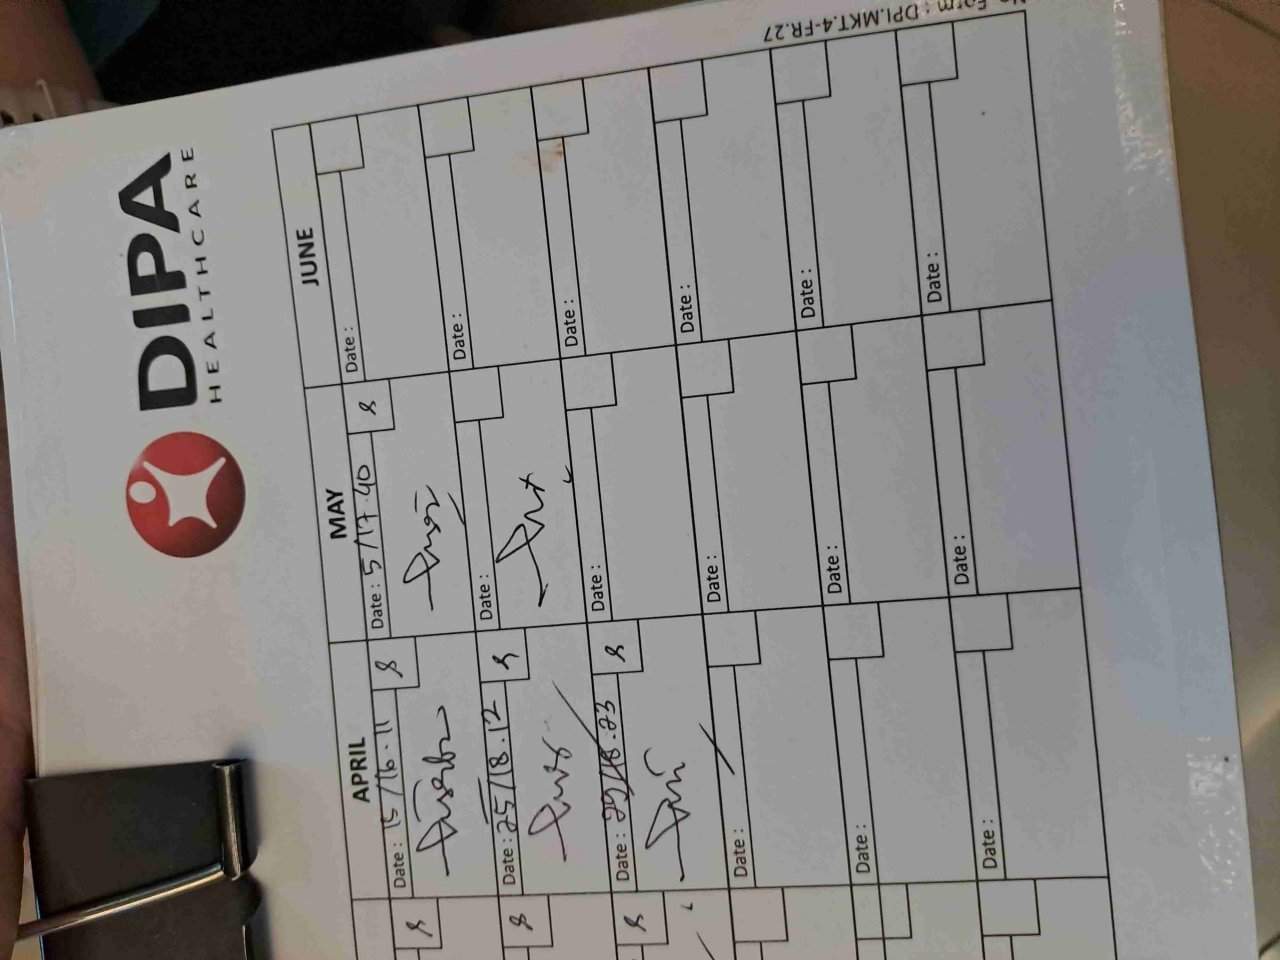 DIPA
HEALTHCARE
No Form : DPI.MKT.4-FR.27
APRIL
MAY
JUNE
Date : 15/16.11
Date : 5/17.40
Date :
Date : 25/18.12
Date :
Date :
Date : 29/18.23
Date :
Date :
Date :
Date :
Date :
Date :
Date :
Date :
Date :
Date :